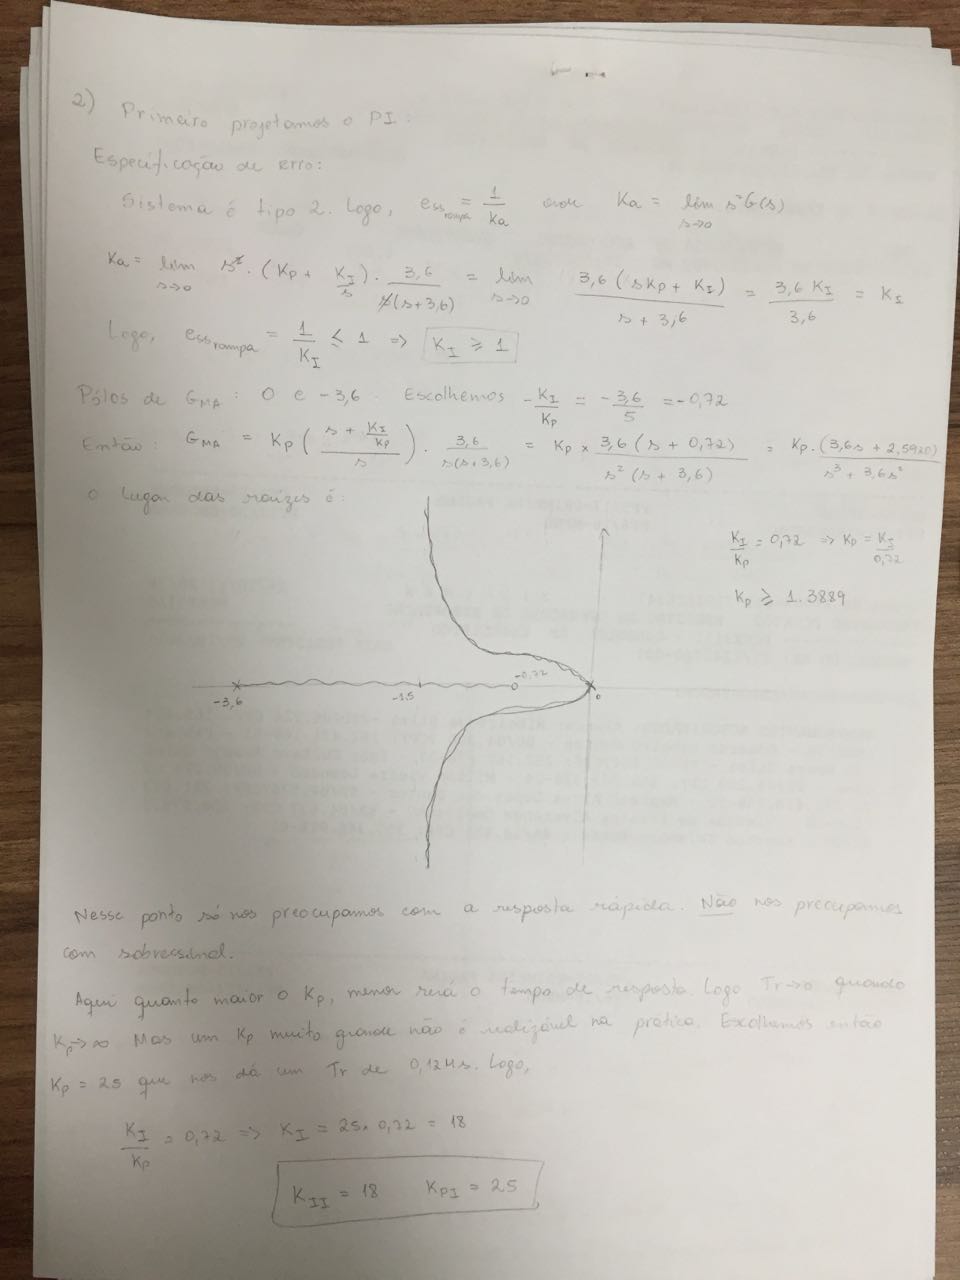 2) Primeiro projetamos o PI:
Especificação de erro:
Sistema é tipo 2. Logo, ess rampa = 1/Ka onde Ka = lim s→0 s²G(s)
Ka = lim s→0 s² · (KP + KI/s) · 3,6/s(s+3,6) = lim s→0 3,6(sKP + KI)/s + 3,6 = 3,6 KI/3,6 = KI
Logo, ess rampa = 1/KI ≤ 1 => KI ≥ 1
Pólos de GMA: 0 e -3,6. Escolhemos -KI/KP = -3,6/5 = -0,72
Então: GMA = KP(s + KI/KP / s) · 3,6/s(s+3,6) = KP × 3,6(s + 0,72)/s²(s + 3,6) = KP · (3,6s + 2,5920)/s³ + 3,6s²
O lugar das raízes é:
KI/KP = 0,72 => KP = KI/0,72
KP ≥ 1.3889
-3,6 -1,5 -0,72 0
Nesse ponto só nos preocupamos com a resposta rápida. Não nos preocupamos
com sobressinal.
Aqui quanto maior o KP, menor será o tempo de resposta. Logo Tr→0 quando
KP→∞ Mas um KP muito grande não é realizável na prática. Escolhemos então
KP = 25 que nos dá um Tr de 0,124s. Logo,
KI/KP = 0,72 => KI = 25 × 0,72 = 18
KII = 18 KPI = 25